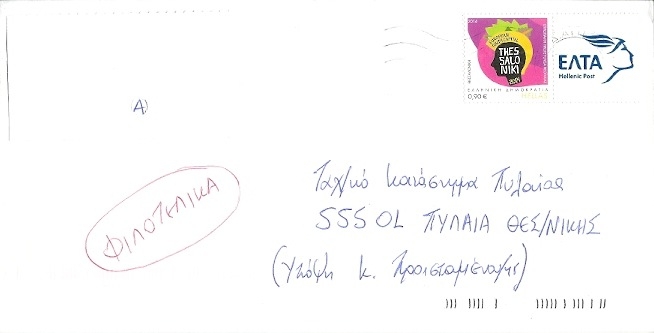 2014
THES
SALO
NIKI
2014
ΕΛΛΗΝΙΚΗ ΔΗΜΟΚΡΑΤΙΑ
0,90 €
ΕΛΤΑ
Hellenic Post
A)
ΦΙΛΟΤΕΛΙΚΑ
Ταχ/κό Κατάστημα Πυλαίας
555 01 ΠΥΛΑΙΑ ΘΕΣ/ΝΙΚΗΣ
(Υπόψη κ. Προισταμένου/ης)